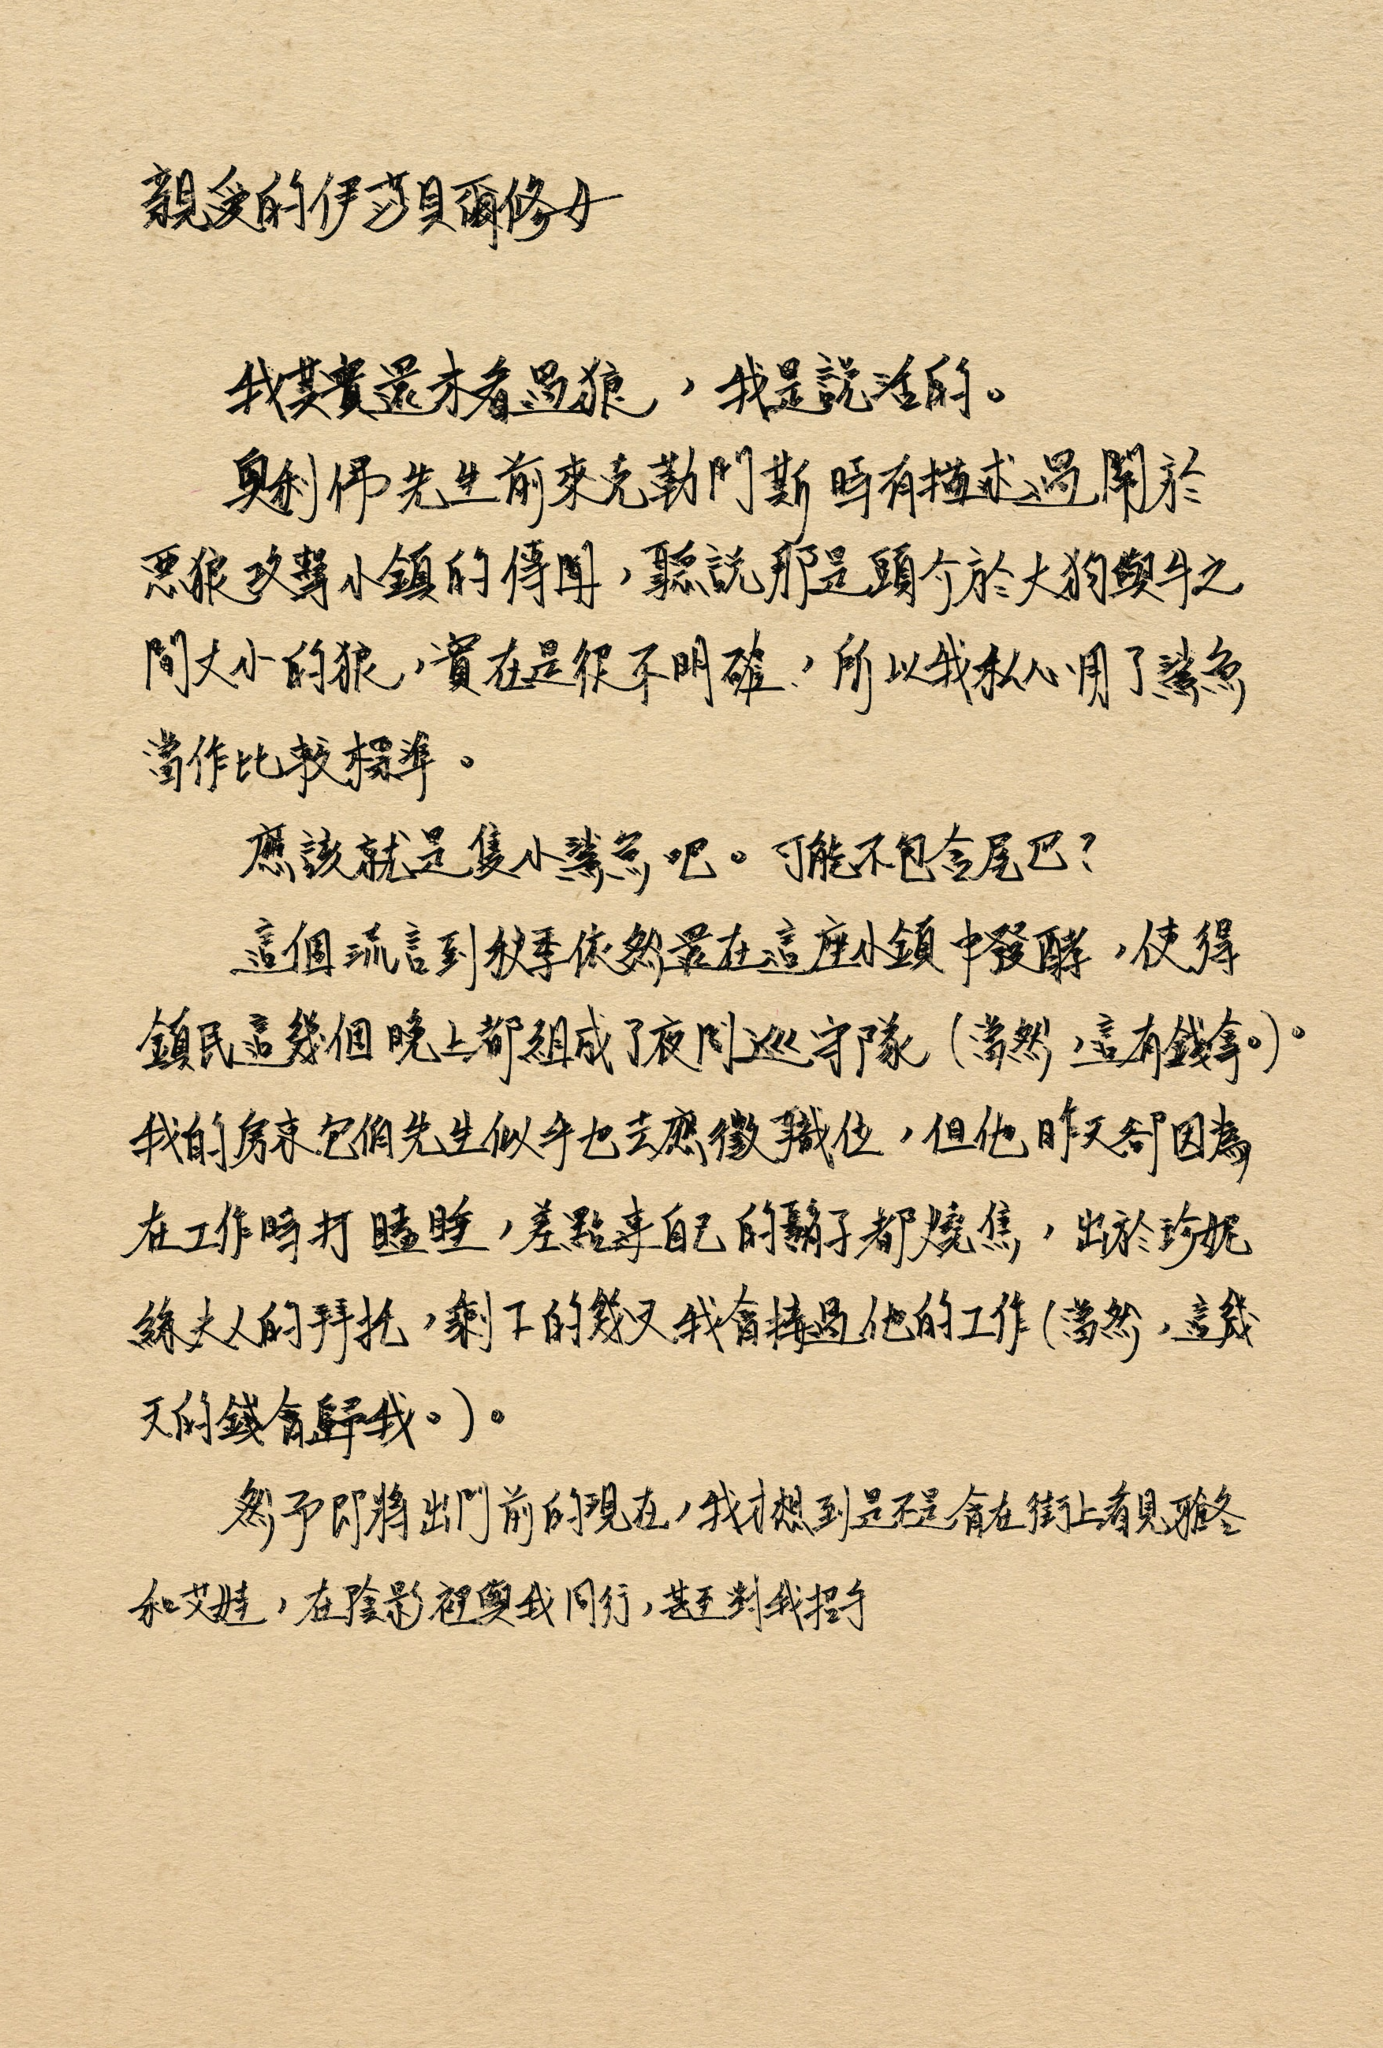 親愛的伊莎貝爾修女
我其實還未看過狼，我是說活的。
奧利佛先生前來克勒門斯時有描述過關於
惡狼攻擊小鎮的傳聞，聽說那是頭介於大狗與牛之
間大小的狼，實在是很不明確，所以我私心用了鯊魚
當作比較標準。
應該就是隻小鯊魚吧。可能不包含尾巴？
這個流言到秋季依然還在這座小鎮中發酵，使得
鎮民這幾個晚上都組成了夜間巡守隊（當然，這有錢拿。）。
我的房東包伯先生似乎也去應徵職位，但他昨天卻因為
在工作時打瞌睡，差點連自己的鬍子都燒焦，出於珍妮
絲夫人的拜託，剩下的幾天我會接過他的工作（當然，這幾
天的錢會歸我。）。
然予即將出門前的現在，我才想到是不是會在街上看見雅冬
和艾娃，在陰影裡與我同行，甚至對我招手